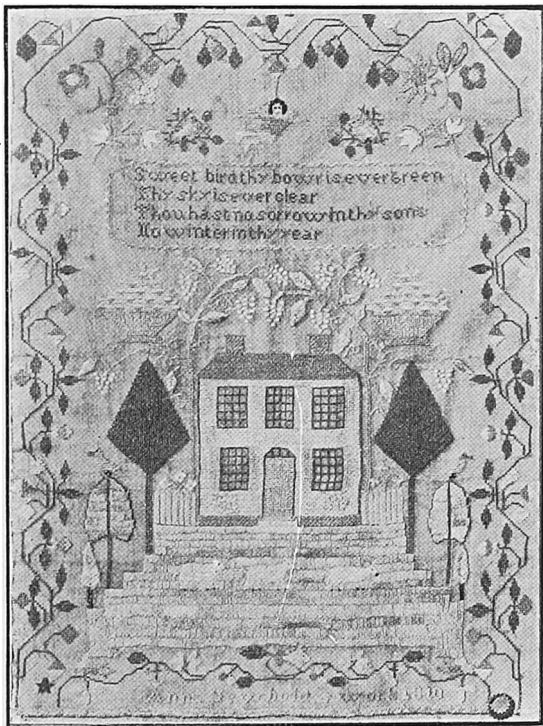 Sweet bird thy bow'r is ever green
Thy sky is ever clear
Thou hast no sorrow in thy song
No winter in thy year
Ann work